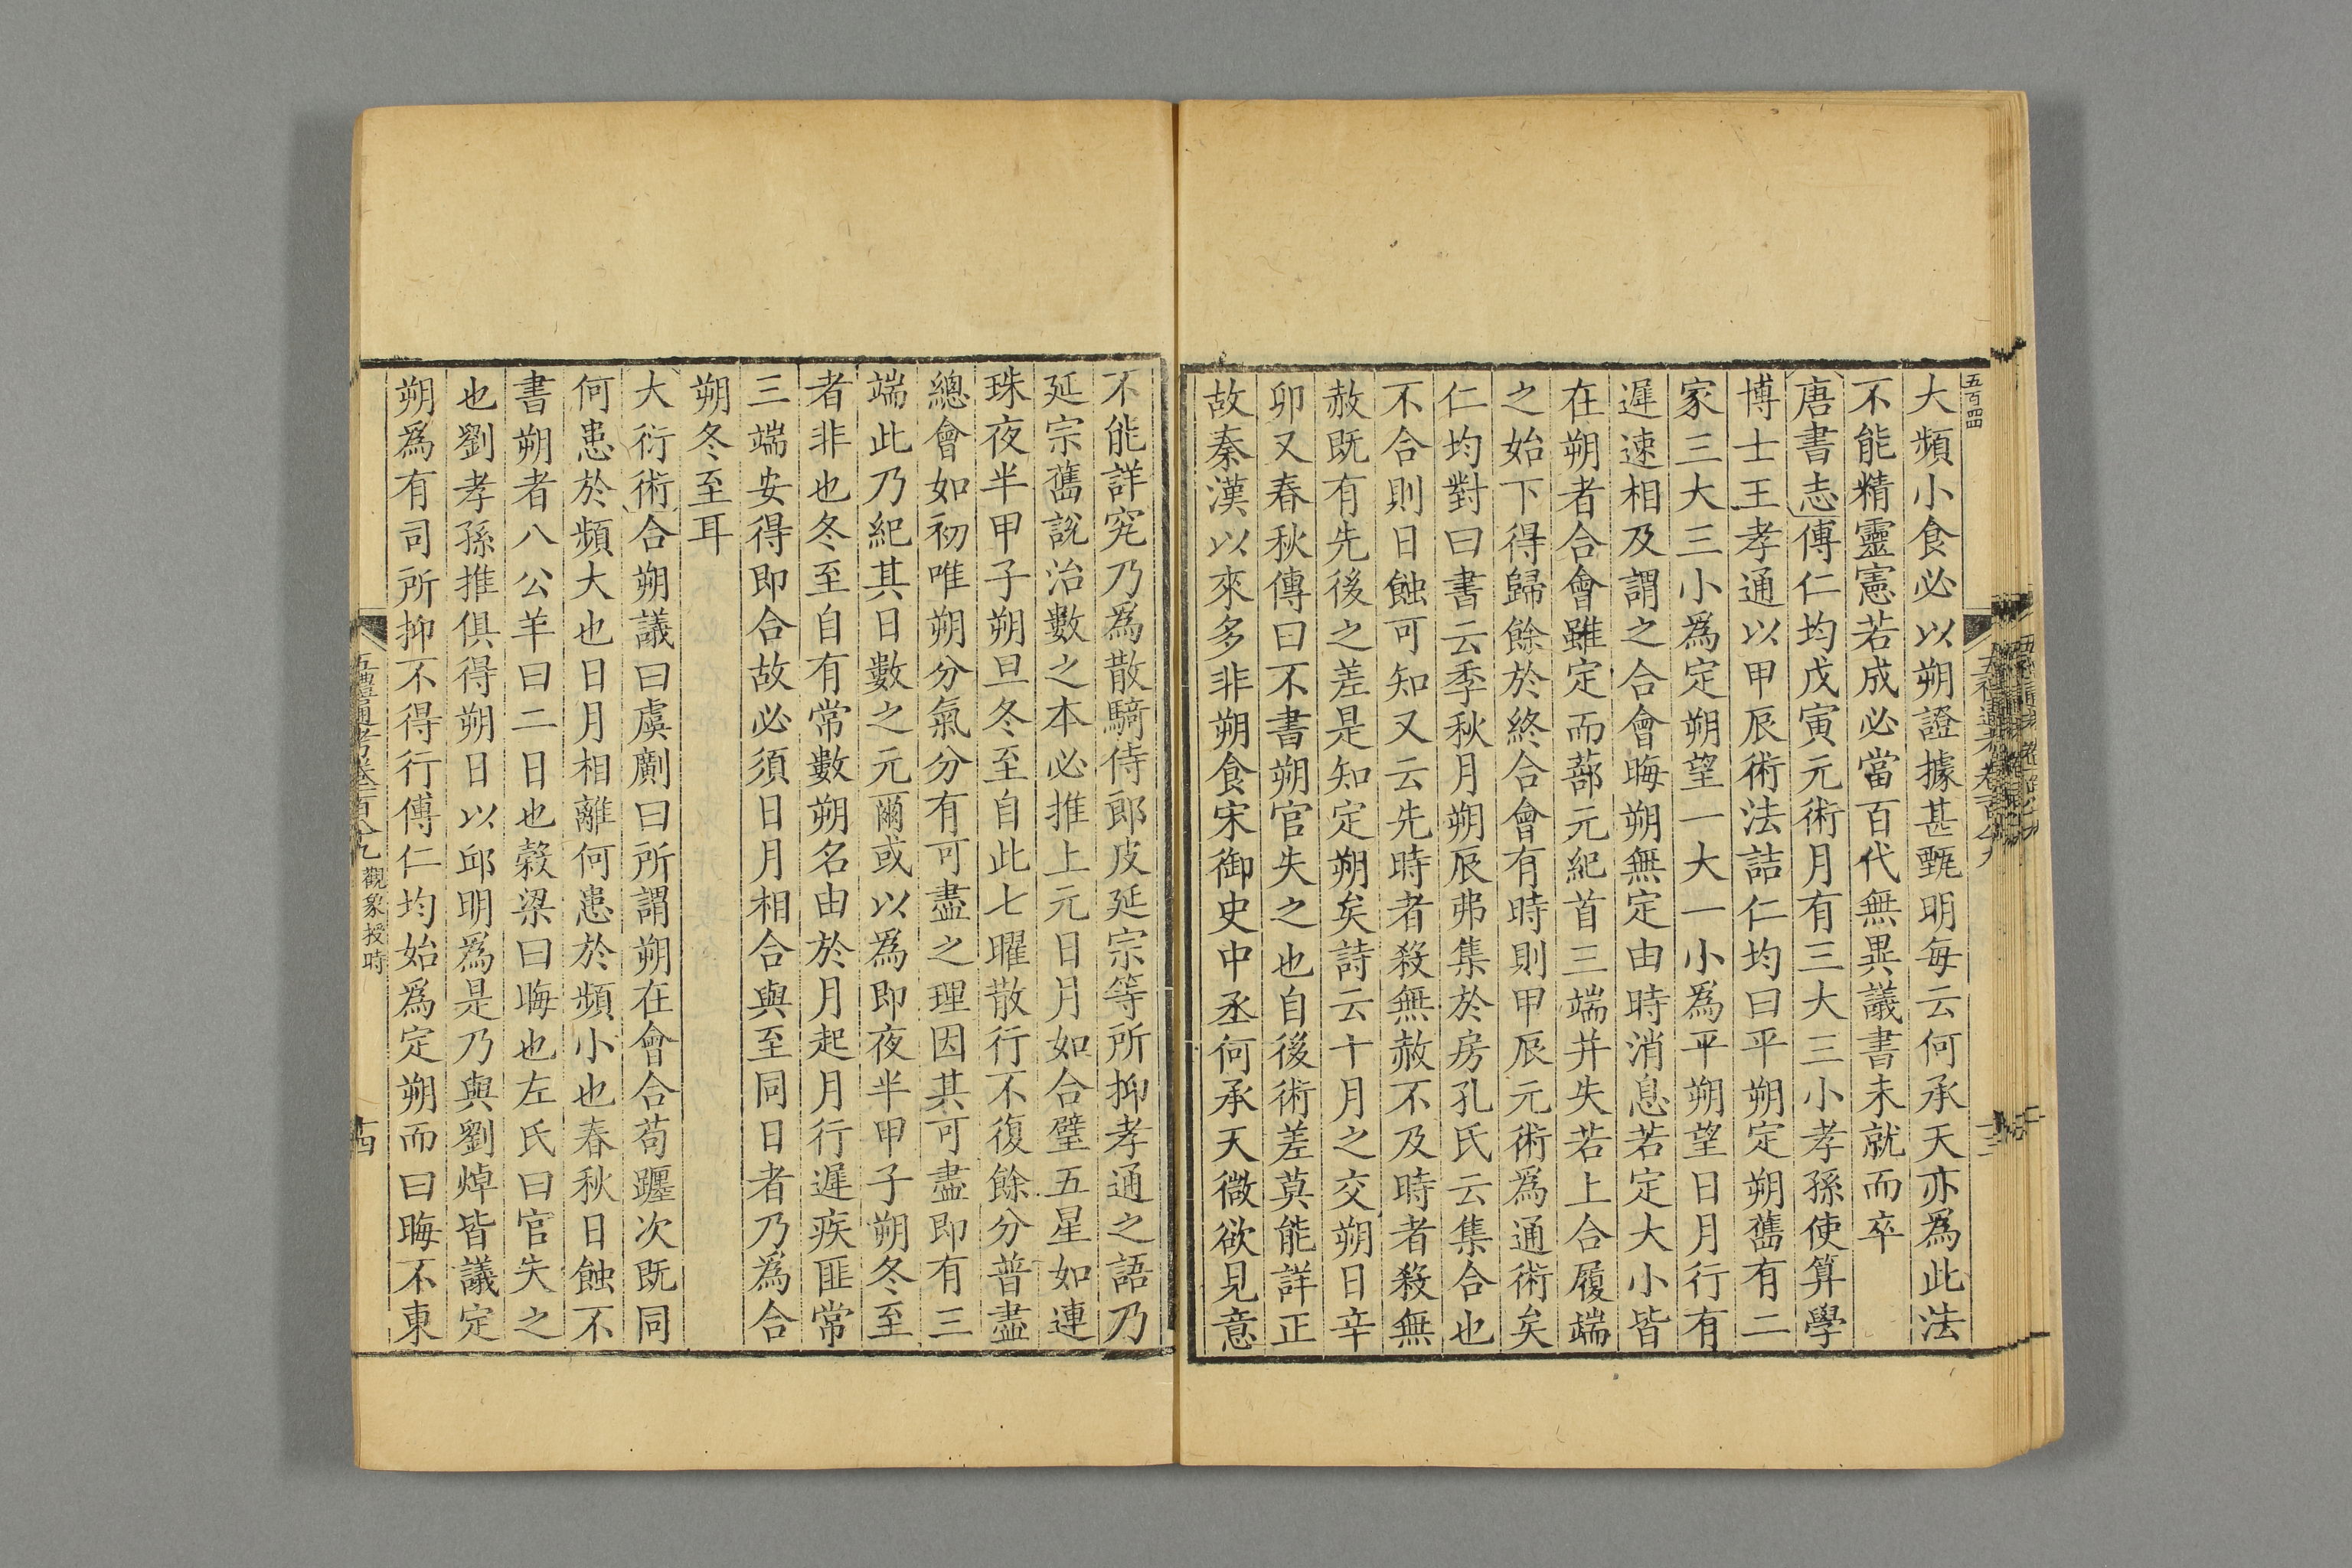 五百四
大頻小食必以朔證據甚甄明每云何承天亦爲此法
不能精靈憲若成必當百代無異議書未就而卒
唐書志傅仁均戊寅元術月有三大三小孝孫使算學
博士王孝通以甲辰術法詰仁均曰平朔定朔舊有二
家三大三小爲定朔望一大一小爲平朔望日月行有
遲速相及謂之合會晦朔無定由時消息若定大小皆
在朔者合會雖定而蔀元紀首三端并失若上合履端
之始下得歸餘於終合會有時則甲辰元術爲通術矣
仁均對曰書云季秋月朔辰弗集於房孔氏云集合也
不合則日蝕可知又云先時者殺無赦不及時者殺無
赦既有先後之差是知定朔矣詩云十月之交朔日辛
卯又春秋傳曰不書朔官失之也自後術差莫能詳正
故秦漢以來多非朔食宋御史中丞何承天微欲見意
不能詳究乃爲散騎侍郎皮延宗等所抑孝通之語乃
延宗舊說治數之本必推上元日月如合璧五星如連
珠夜半甲子朔旦冬至自此七曜散行不復餘分普盡
總會如初唯朔分氣分有可盡之理因其可盡即有三
端此乃紀其日數之元爾或以爲即夜半甲子朔冬至
者非也冬至自有常數朔名由於月起月行遲疾匪常
三端安得即合故必須日月相合與至同日者乃爲合
朔冬至耳
大衍術合朔議曰虞𠠎曰所謂朔在會合苟躔次既同
何患於頻大也日月相離何患於頻小也春秋日蝕不
書朔者八公羊曰二日也穀梁曰晦也左氏曰官失之
也劉孝孫推俱得朔日以邱明爲是乃與劉焯皆議定
朔爲有司所抑不得行傅仁均始爲定朔而曰晦不東
五禮通考卷一百八十九 觀象授時
十四